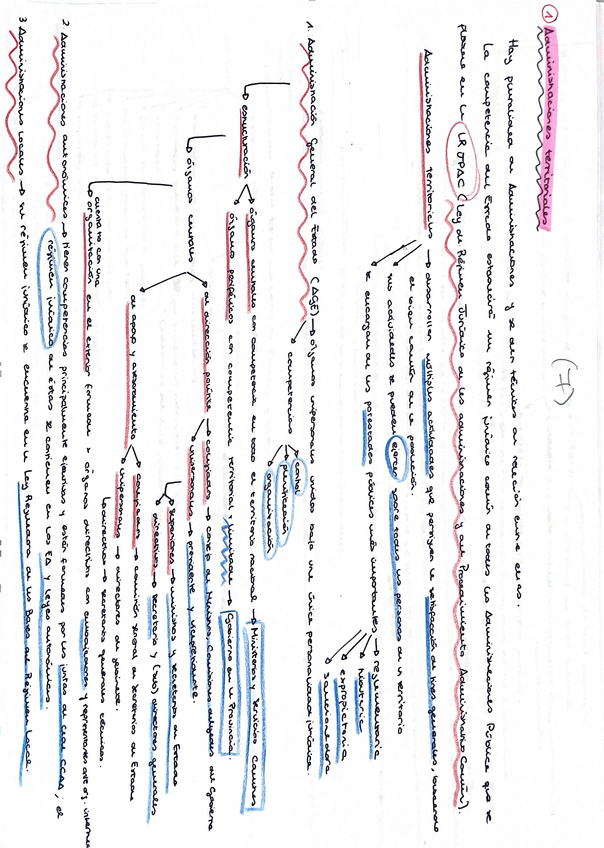 (7)
① Administraciones territoriales
Hay pluralidad de Administraciones y se dan técnicas de relación entre ellas.
La competencia del Estado establecerá un régimen jurídico común de todas las Administraciones Públicas que se
plasma en la LRJPAC (Ley de Régimen Jurídico de las administraciones y del Procedimiento Administrativo Común).
Administraciones territoriales → desarrollan múltiples actividades que persiguen la satisfacción de fines generales, buscando
el bien común de la población.
→ sus actividades se pueden ejercer sobre todas las personas de un territorio
→ se encargan de las potestades públicas más importantes → reglamentaria
→ tributaria
→ expropiatoria
→ sancionadora
1. Administración General del Estado (AGE) → órganos impersonales unidos bajo una única personalidad jurídica.
→ competencias → control
→ planificación
→ organización
→ estructuración → órganos centrales con competencia en todo el territorio nacional → Ministerios y Servicios Comunes
→ órganos periféricos con competencia territorial limitada → Gobierno en la Provincia
→ órganos centrales → de dirección política → colegiados → Consejo de Ministros, Comisiones delegadas del Gobierno
→ unipersonales → presidente y vicepresidente.
→ superiores → ministros y secretarios de Estado
→ directivos → secretario y (sub) directores generales
→ de apoyo y asesoramiento → colegiados → comisión general de secretarios de Estado
→ unipersonales → directores de gabinete.
→ directivo → secretarios generales técnicos.
cuenta con una
→ organización en el exterior formada x órganos directivos con embajadores y representantes ante org. internac
2 Administraciones autonómicas → tienen competencias principalmente ejecutivas y están formadas por las juntas de cada CCAA; el
régimen jurídico de éstas se contienen en los EA y leyes autonómicas.
3 Administraciones Locales → su régimen jurídico se encuentra en la Ley Reguladora de las Bases de Régimen Local.